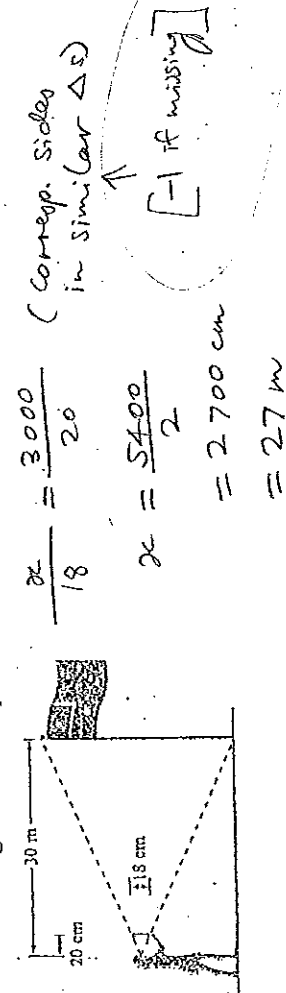 30 m
20 cm
18 cm
x/18 = 3000/20 (corresp. sides
in similar Δs)
x = 5400/2
[-1 if missing]
= 2700 cm
= 27 m